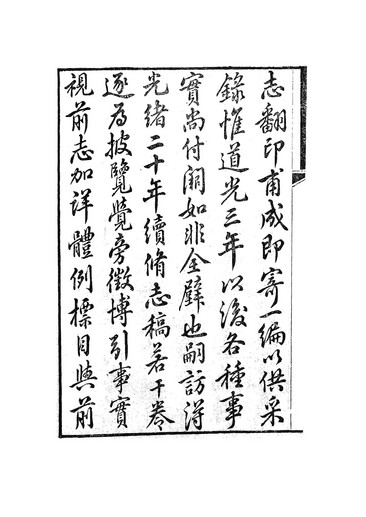 志翻印甫成即寄一編以供采
錄惟道光三年以後各種事
實尚付闕如非全璧也嗣訪得
光緒二十年續脩志稿若干卷
逐為披覽覺旁徵博引事實
視前志加詳體例標目與前